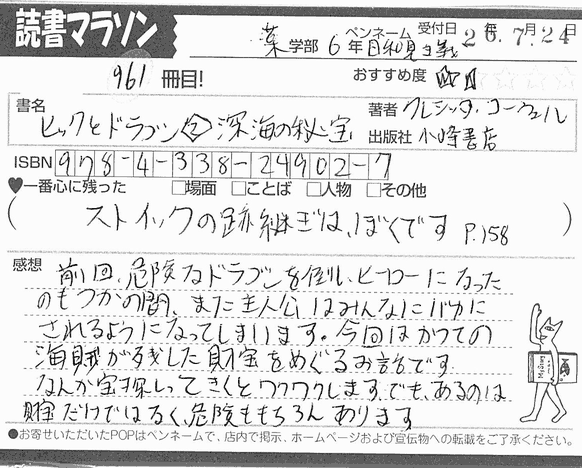 読書マラソン
薬学部 6年 ペンネーム 日和見主義 受付日 26年7月24日
961 冊目! おすすめ度
書名 ヒックとドラゴン② 深海の秘宝
著者 クレシッダ・コーウェル
出版社 小峰書店
ISBN 978-4-338-24902-7
♥一番心に残った □場面 □ことば □人物 □その他
(ストイックの跡継ぎは、ぼくです P.158)
感想 前回、危険なドラゴンを倒し、ヒーローになった
のもつかの間、また主人公はみんなにバカに
されるようになってしまいます。今回はかつての
海賊が残した財宝をめぐるお話です。
なんか宝探しってきくとワクワクします。でも、あるのは
財宝だけではなく、危険ももちろんあります
●お寄せいただいたPOPはペンネームで、店内で掲示、ホームページおよび宣伝物への転載をご了承ください。